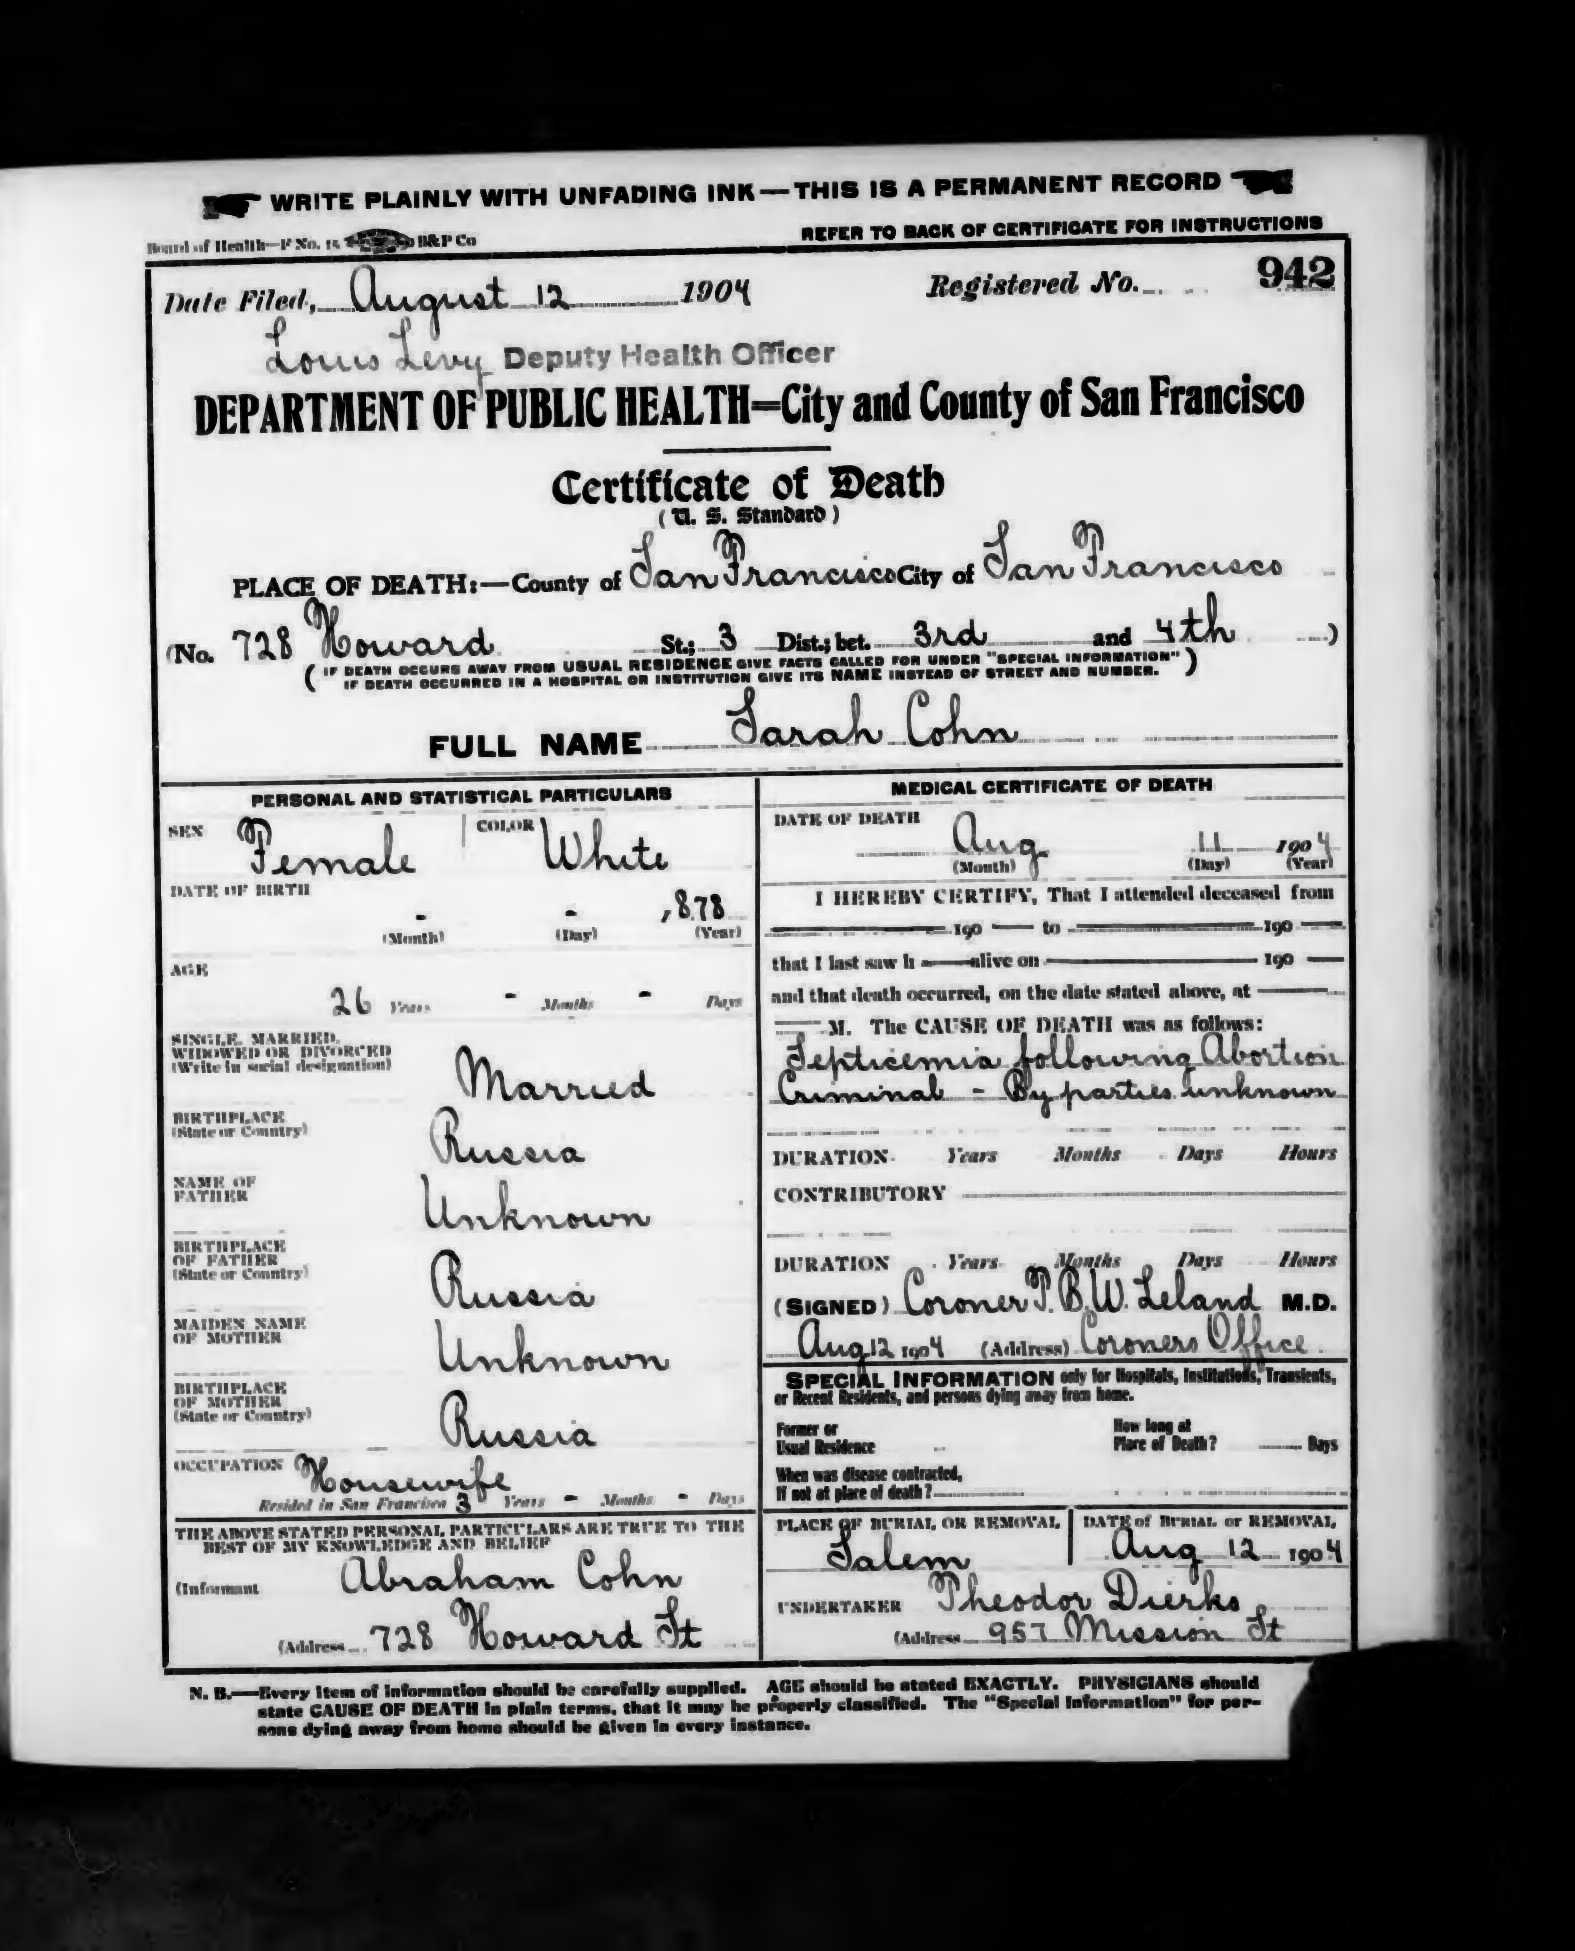 WRITE PLAINLY WITH UNFADING INK—THIS IS A PERMANENT RECORD
Board of Health—F No. 15 B&P Co
REFER TO BACK OF CERTIFICATE FOR INSTRUCTIONS
Date Filed, August 12 1904 Registered No. 942
Louis Levy Deputy Health Officer
DEPARTMENT OF PUBLIC HEALTH=City and County of San Francisco
Certificate of Death
(U. S. Standard)
PLACE OF DEATH:—County of San Francisco City of San Francisco
(No. 728 Howard St.; 3 Dist.; bet. 3rd and 4th)
(IF DEATH OCCURS AWAY FROM USUAL RESIDENCE GIVE FACTS CALLED FOR UNDER "SPECIAL INFORMATION"
IF DEATH OCCURRED IN A HOSPITAL OR INSTITUTION GIVE ITS NAME INSTEAD OF STREET AND NUMBER.)
FULL NAME Sarah Cohn
PERSONAL AND STATISTICAL PARTICULARS
SEX Female COLOR White
DATE OF BIRTH
- - 1878
(Month) (Day) (Year)
AGE
26 Years - Months - Days
SINGLE, MARRIED,
WIDOWED OR DIVORCED
(Write in social designation)
Married
BIRTHPLACE
(State or Country)
Russia
NAME OF
FATHER
Unknown
BIRTHPLACE
OF FATHER
(State or Country)
Russia
MAIDEN NAME
OF MOTHER
Unknown
BIRTHPLACE
OF MOTHER
(State or Country)
Russia
OCCUPATION Housewife
Resided in San Francisco 3 Years - Months - Days
THE ABOVE STATED PERSONAL PARTICULARS ARE TRUE TO THE
BEST OF MY KNOWLEDGE AND BELIEF
(Informant Abraham Cohn
(Address 728 Howard St
MEDICAL CERTIFICATE OF DEATH
DATE OF DEATH
Aug 11 1904
(Month) (Day) (Year)
I HEREBY CERTIFY, That I attended deceased from
190 — to 190 —
that I last saw h — alive on — 190 —
and that death occurred, on the date stated above, at —
— M. The CAUSE OF DEATH was as follows:
Septicemia following Abortion
Criminal - By parties unknown
DURATION Years Months Days Hours
CONTRIBUTORY
DURATION Years Months Days Hours
(SIGNED) Coroner T. B. W. Leland M.D.
Aug 12 1904 (Address) Coroners Office
SPECIAL INFORMATION only for Hospitals, Institutions, Transients,
or Recent Residents, and persons dying away from home.
Former or
Usual Residence
How long at
Place of Death? Days
When was disease contracted,
If not at place of death?
PLACE OF BURIAL OR REMOVAL
Salem
DATE of BURIAL or REMOVAL
Aug 12 1904
UNDERTAKER Theodor Dierks
(Address 957 Mission St
N. B.—Every item of information should be carefully supplied. AGE should be stated EXACTLY. PHYSICIANS should
state CAUSE OF DEATH in plain terms, that it may be properly classified. The "Special Information" for per-
sons dying away from home should be given in every instance.